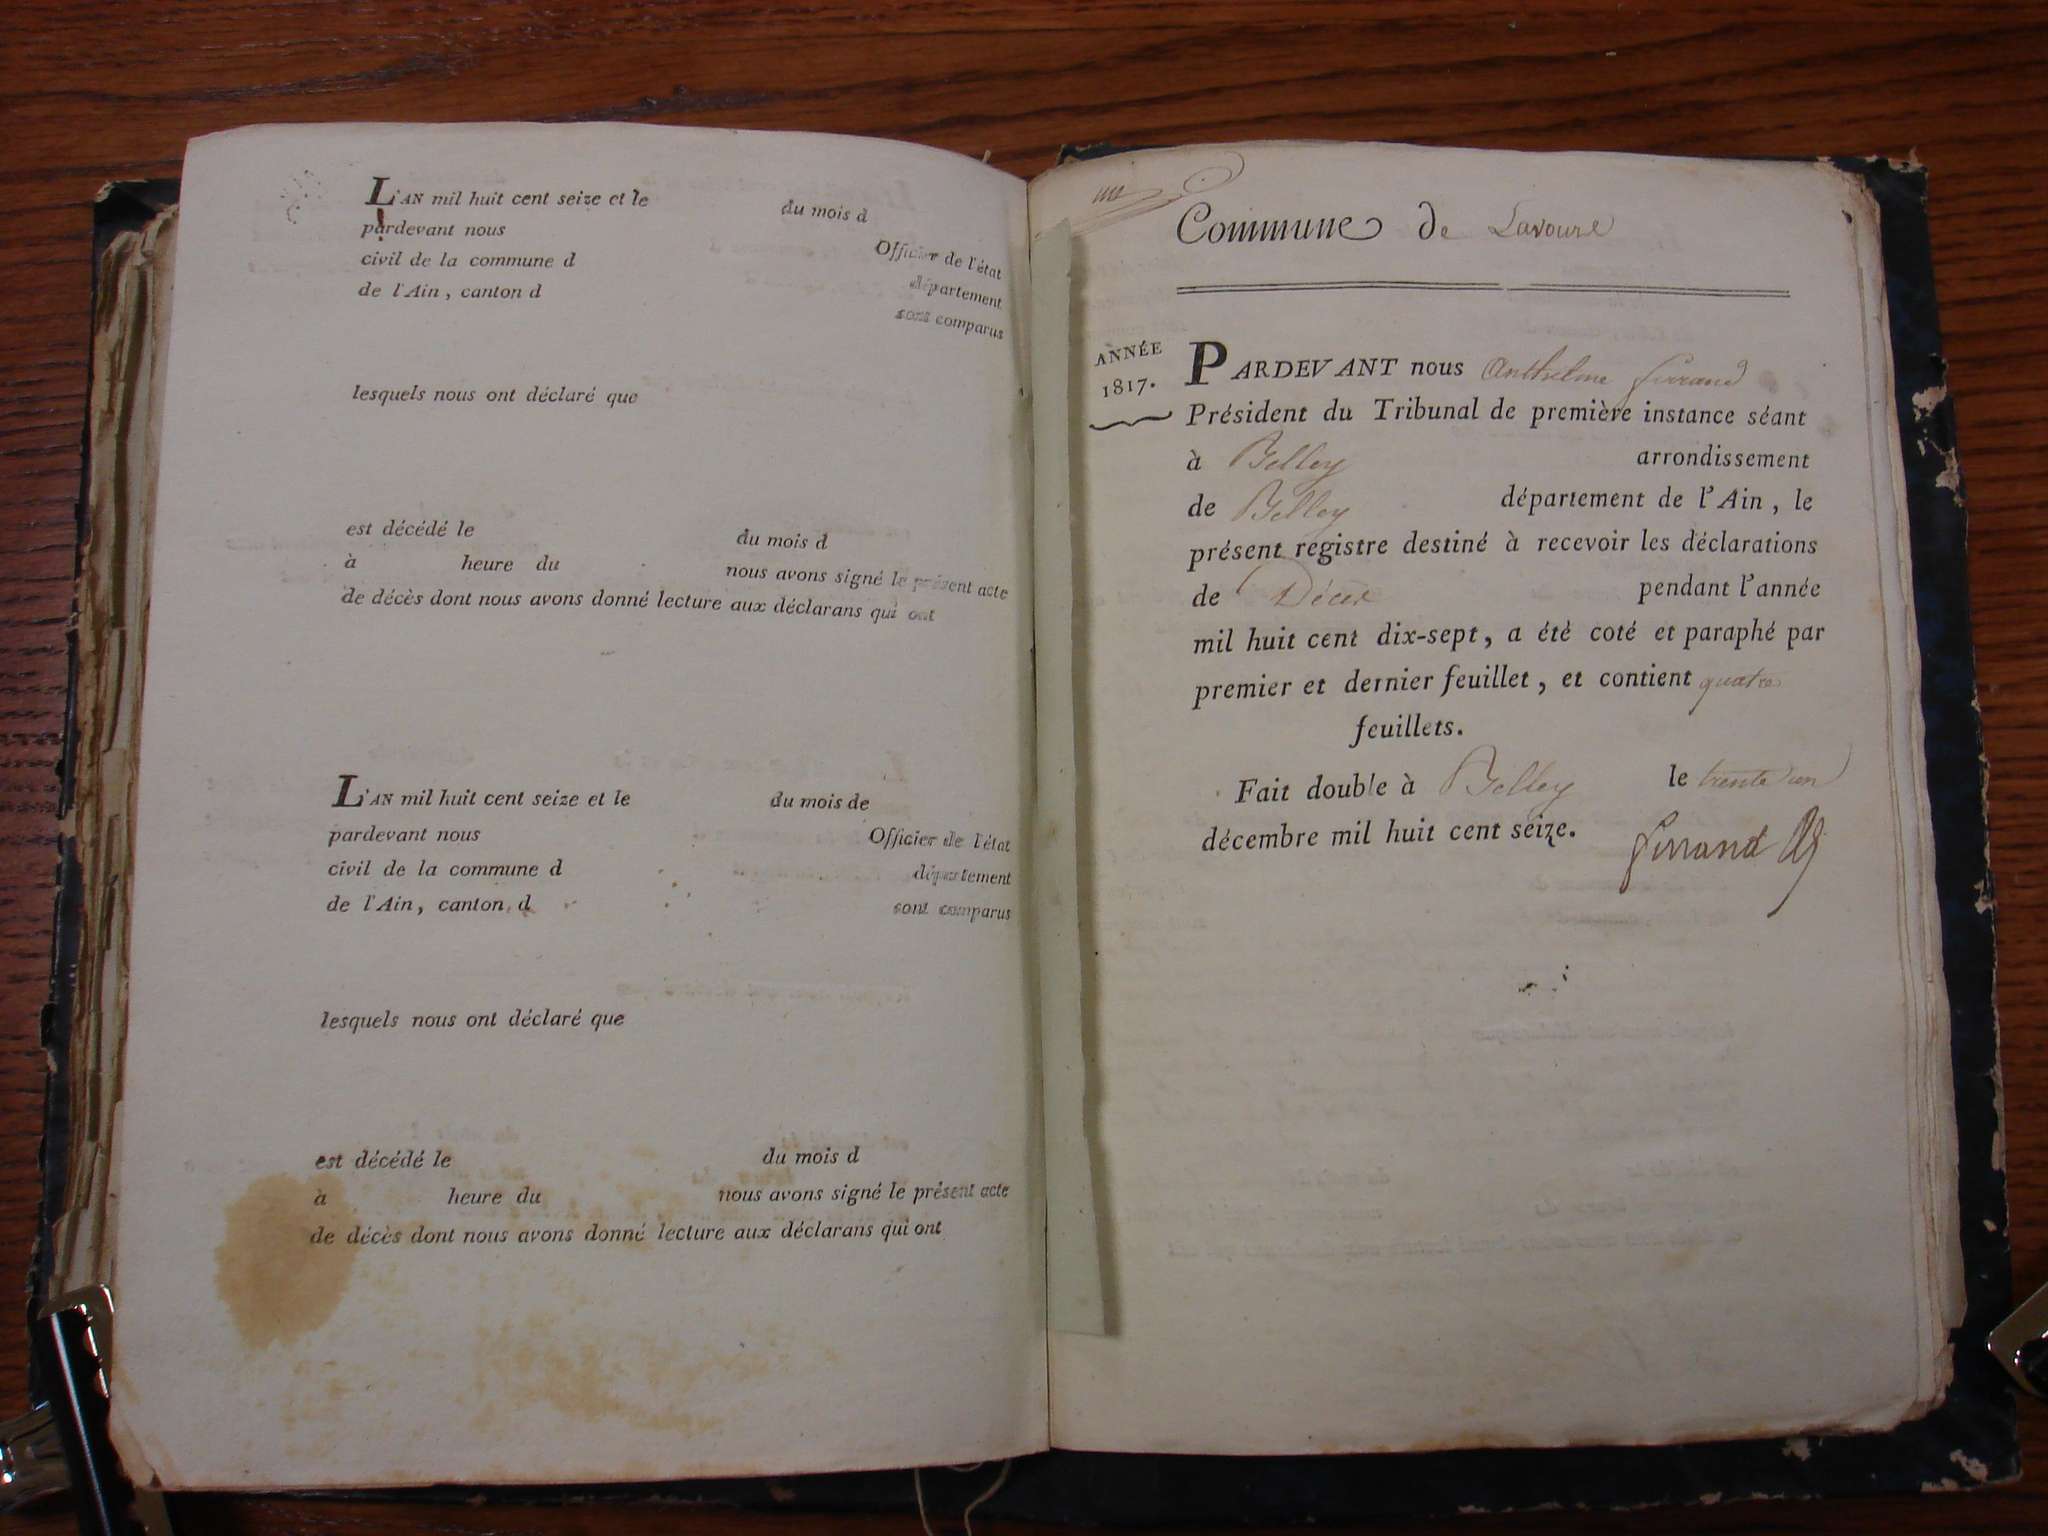 L'AN mil huit cent seize et le du mois d
pardevant nous Officier de l'état
civil de la commune d département
de l'Ain, canton d sont comparus
lesquels nous ont déclaré que
est décédé le du mois d
à heure du nous avons signé le présent acte
de décès dont nous avons donné lecture aux déclarans qui ont
L'AN mil huit cent seize et le du mois de
pardevant nous Officier de l'état
civil de la commune d département
de l'Ain, canton d sont comparus
lesquels nous ont déclaré que
est décédé le du mois d
à heure du nous avons signé le présent acte
de décès dont nous avons donné lecture aux déclarans qui ont
Commune de Lavoure
ANNÉE
1817.
PARDEVANT nous Anthelme ferrand
Président du Tribunal de première instance séant
à Belley arrondissement
de Belley département de l'Ain, le
présent registre destiné à recevoir les déclarations
de Décès pendant l'année
mil huit cent dix-sept, a été coté et paraphé par
premier et dernier feuillet, et contient quatre
feuillets.
Fait double à Belley le trente un
décembre mil huit cent seize.
ferrand